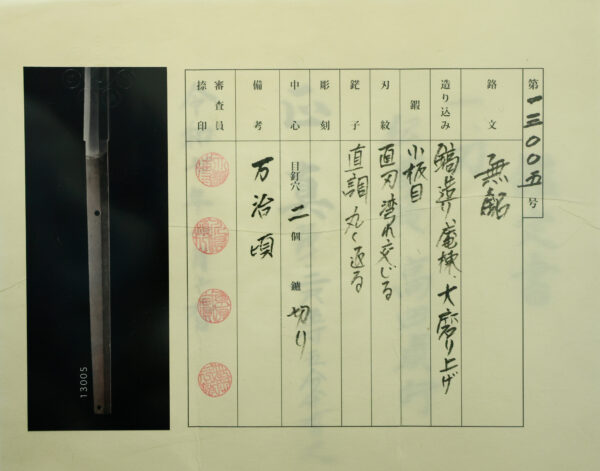 第一三〇〇五号
銘文 無銘
造り込み 鎬造り、庵棟、大磨り上げ
鍛 小板目
刃紋 直刃湾れ交じる
鋩子 直調丸く返る
彫刻
中心 目釘穴 二個 鑢 切り
備考 万治頃
審査員捺印
13005